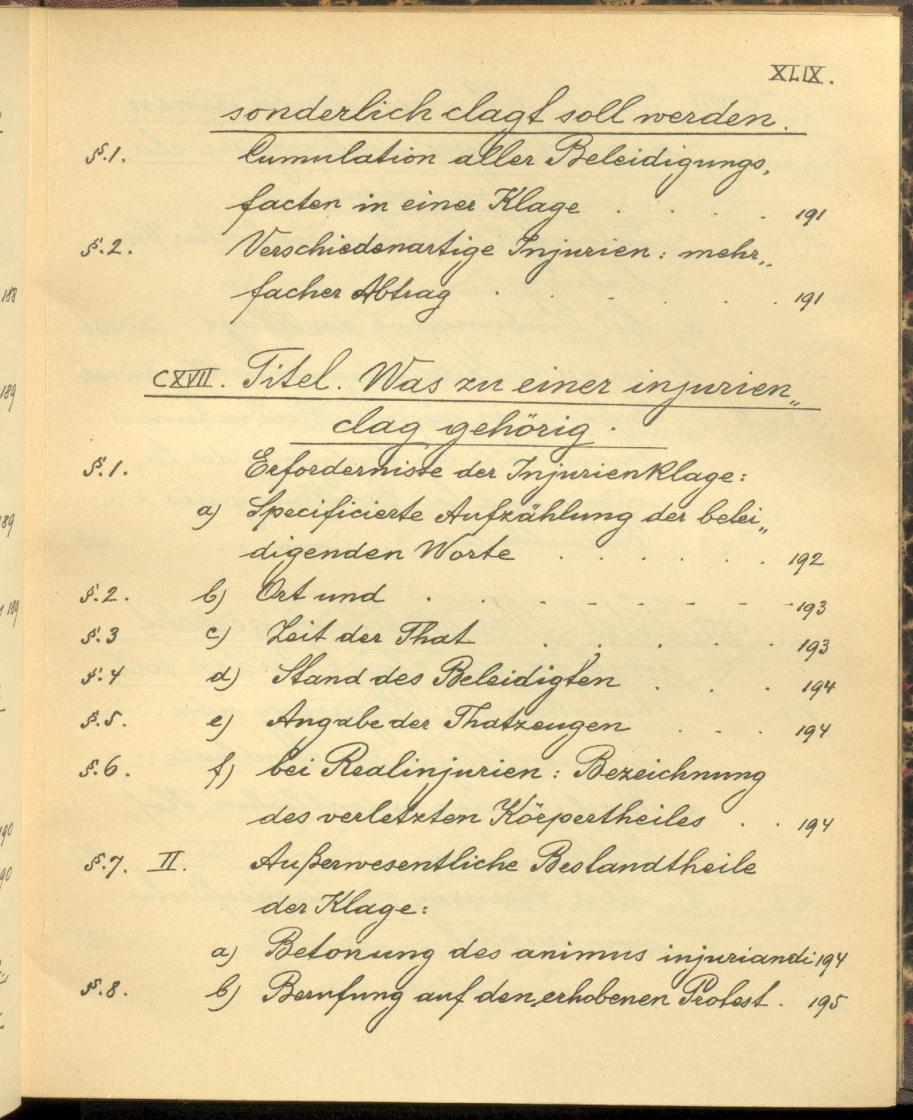 XLIX.
sonderlich clagt soll werden.
§.1. Cumulation aller Beleidigungs,
facten in einer Klage . . . . 191
§.2. Verschiedenartige Injurien: mehr„
facher Abtrag . . . . . 191
CXVII. Titel. Was zu einer injurien„
clag gehörig.
§.1. Erfordernisse der Injurienklage:
a) Specificierte Aufzählung der belei„
digenden Worte . . . . . 192
§.2. b) Ort und . . . . . . . . 193
§.3 c) Zeit der That . . . . . 193
§.4 d) Stand des Beleidigten . . . 194
§.5. e) Angabe der Thatzeugen . . . 194
§.6. f) bei Realinjurien: Bezeichnung
des verletzten Körpertheiles . . 194
§.7. II. Außerwesentliche Bestandtheile
der Klage:
a) Betonung des animus injuriandi 194
§.8. b) Berufung auf den erhobenen Protest. 195
188
189
89
189
190
90